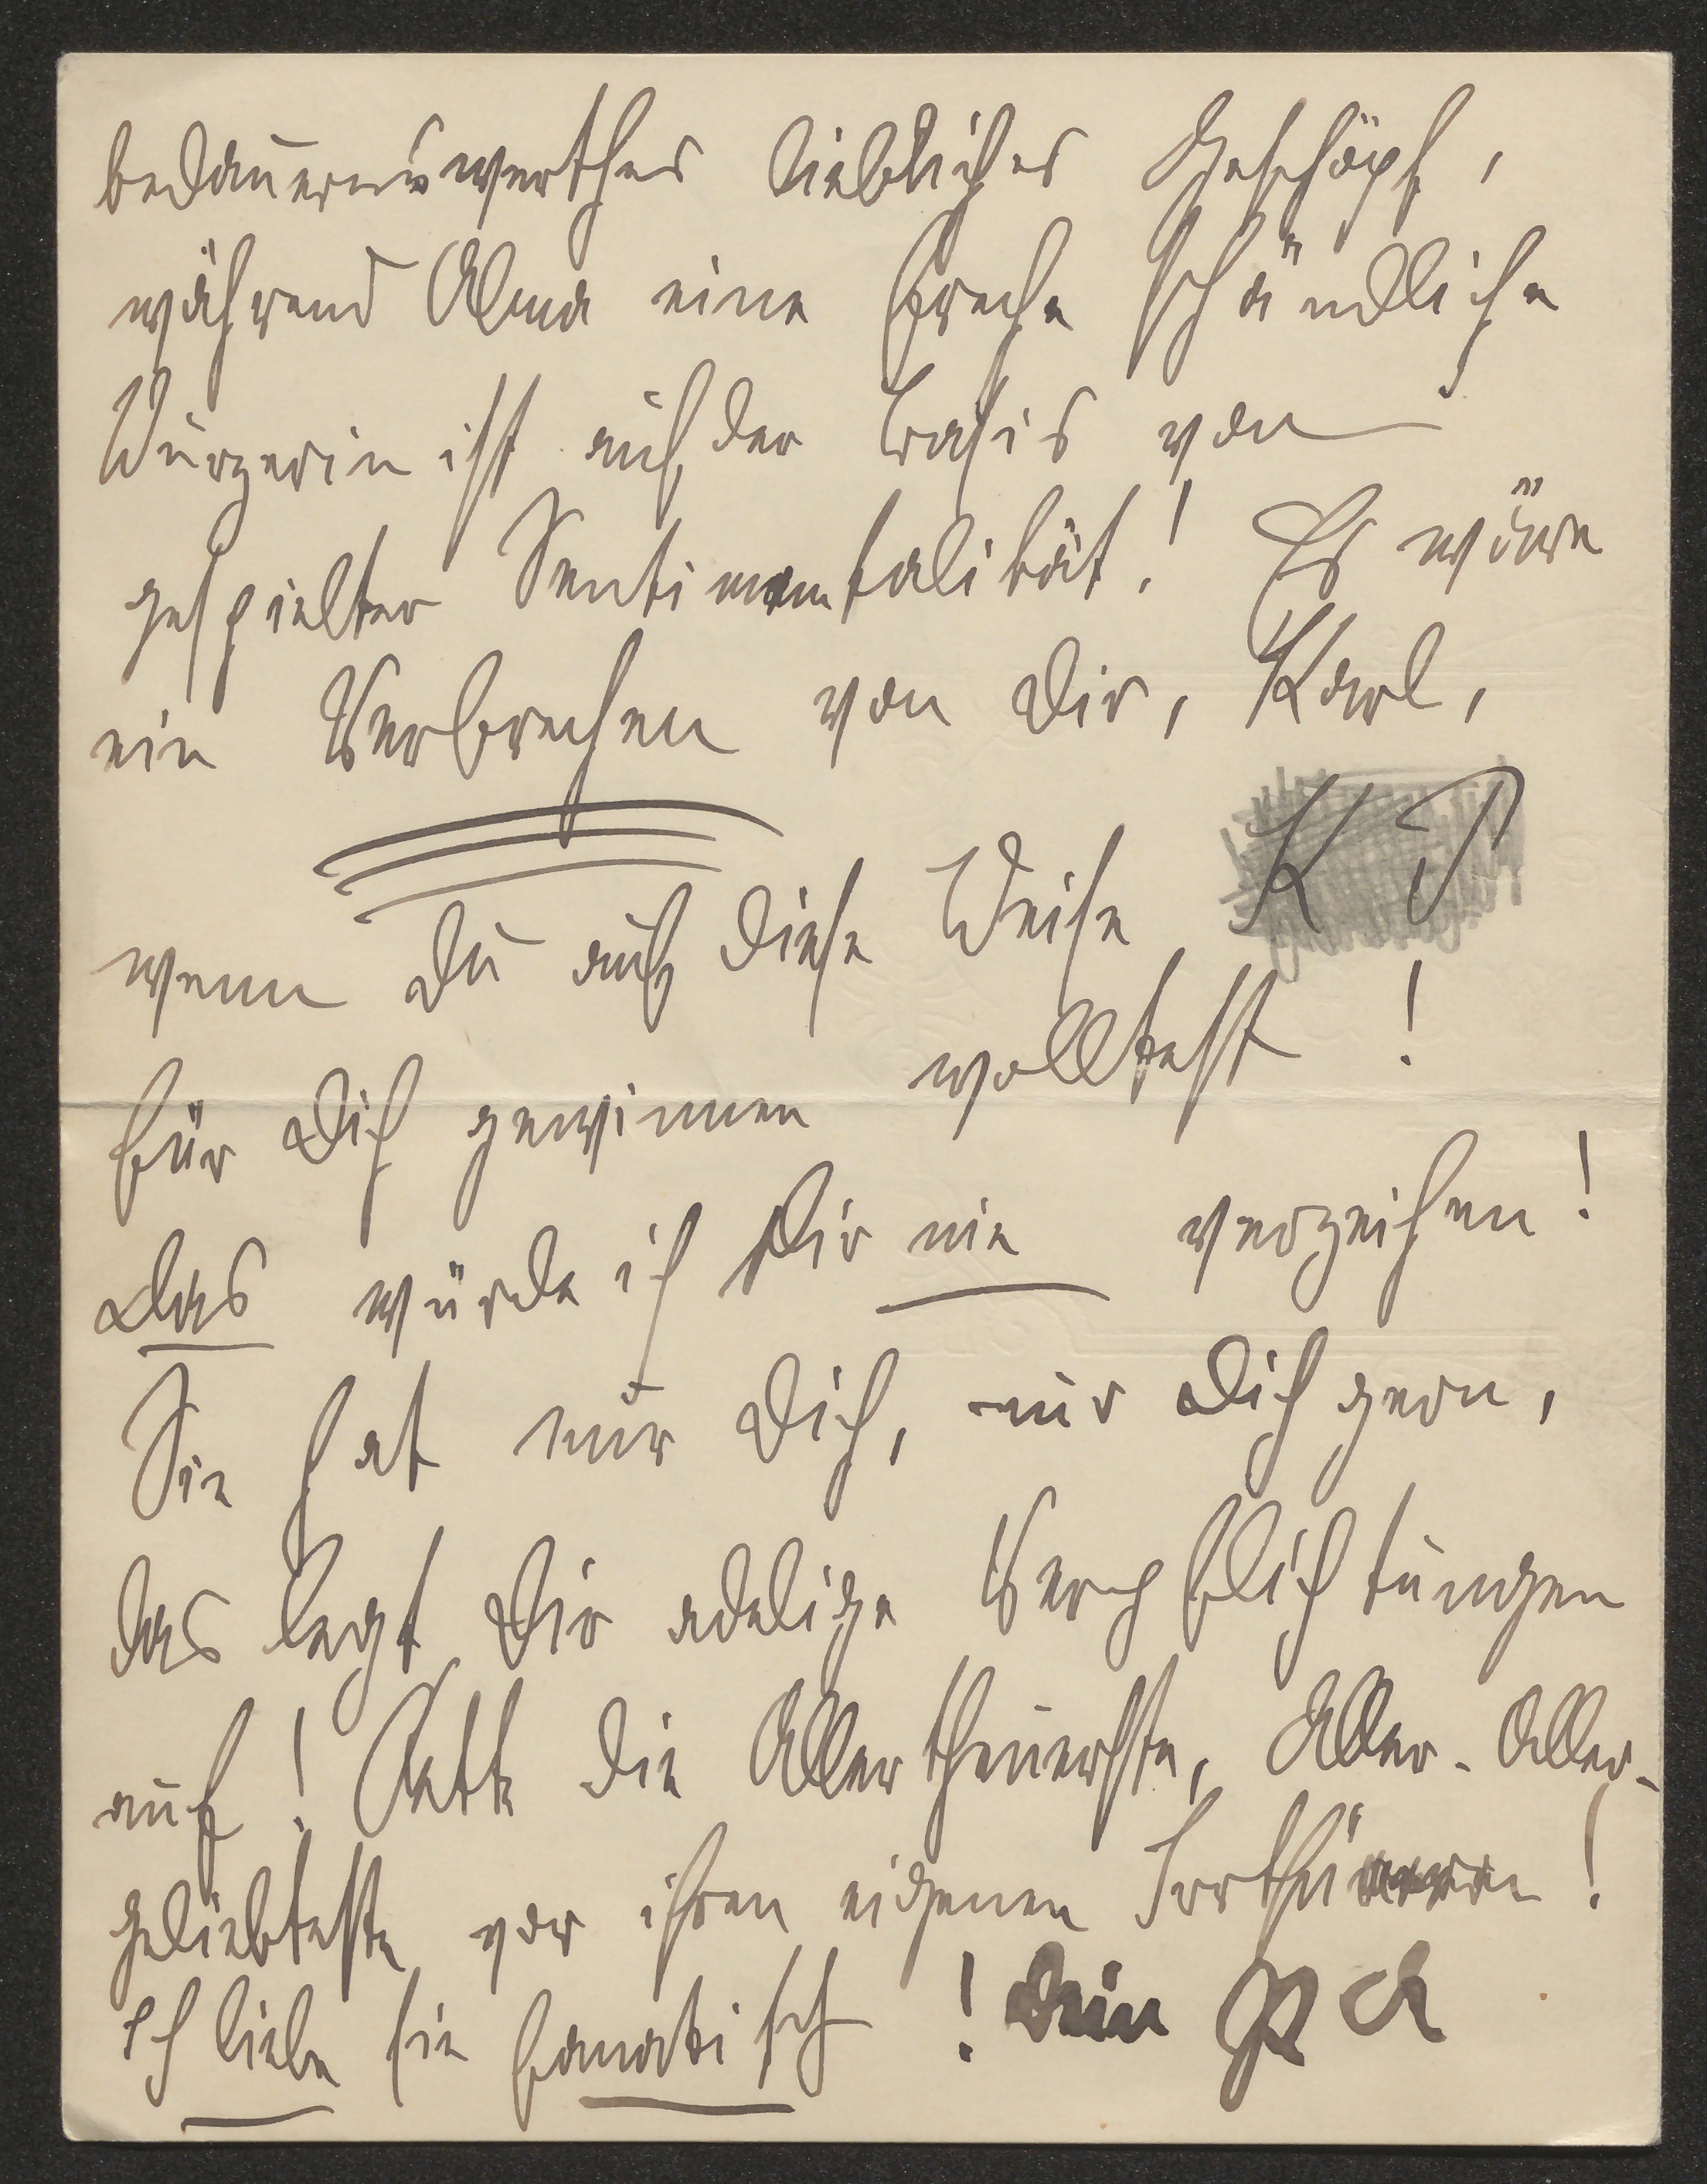 bedauernswerthes liebliches Geschöpf,
während Alma eine freche schändliche
Wurzerin ist auf der Basis von
gespielter Sentimentalität! Es wäre
ein Verbrechen von Dir, Karl,
wenn Du auf diese Weise K P
für Dich gewinnen wolltest!
Das würde ich Dir nie verzeihen!
Sie hat nur Dich, nur Dich gern,
das legt Dir adelige Verpflichtungen
auf! Rette die Allertheuerste, Aller-Aller-
geliebteste vor ihren eigenen Irrthümern!
Ich liebe sie fanatisch! Dein PA